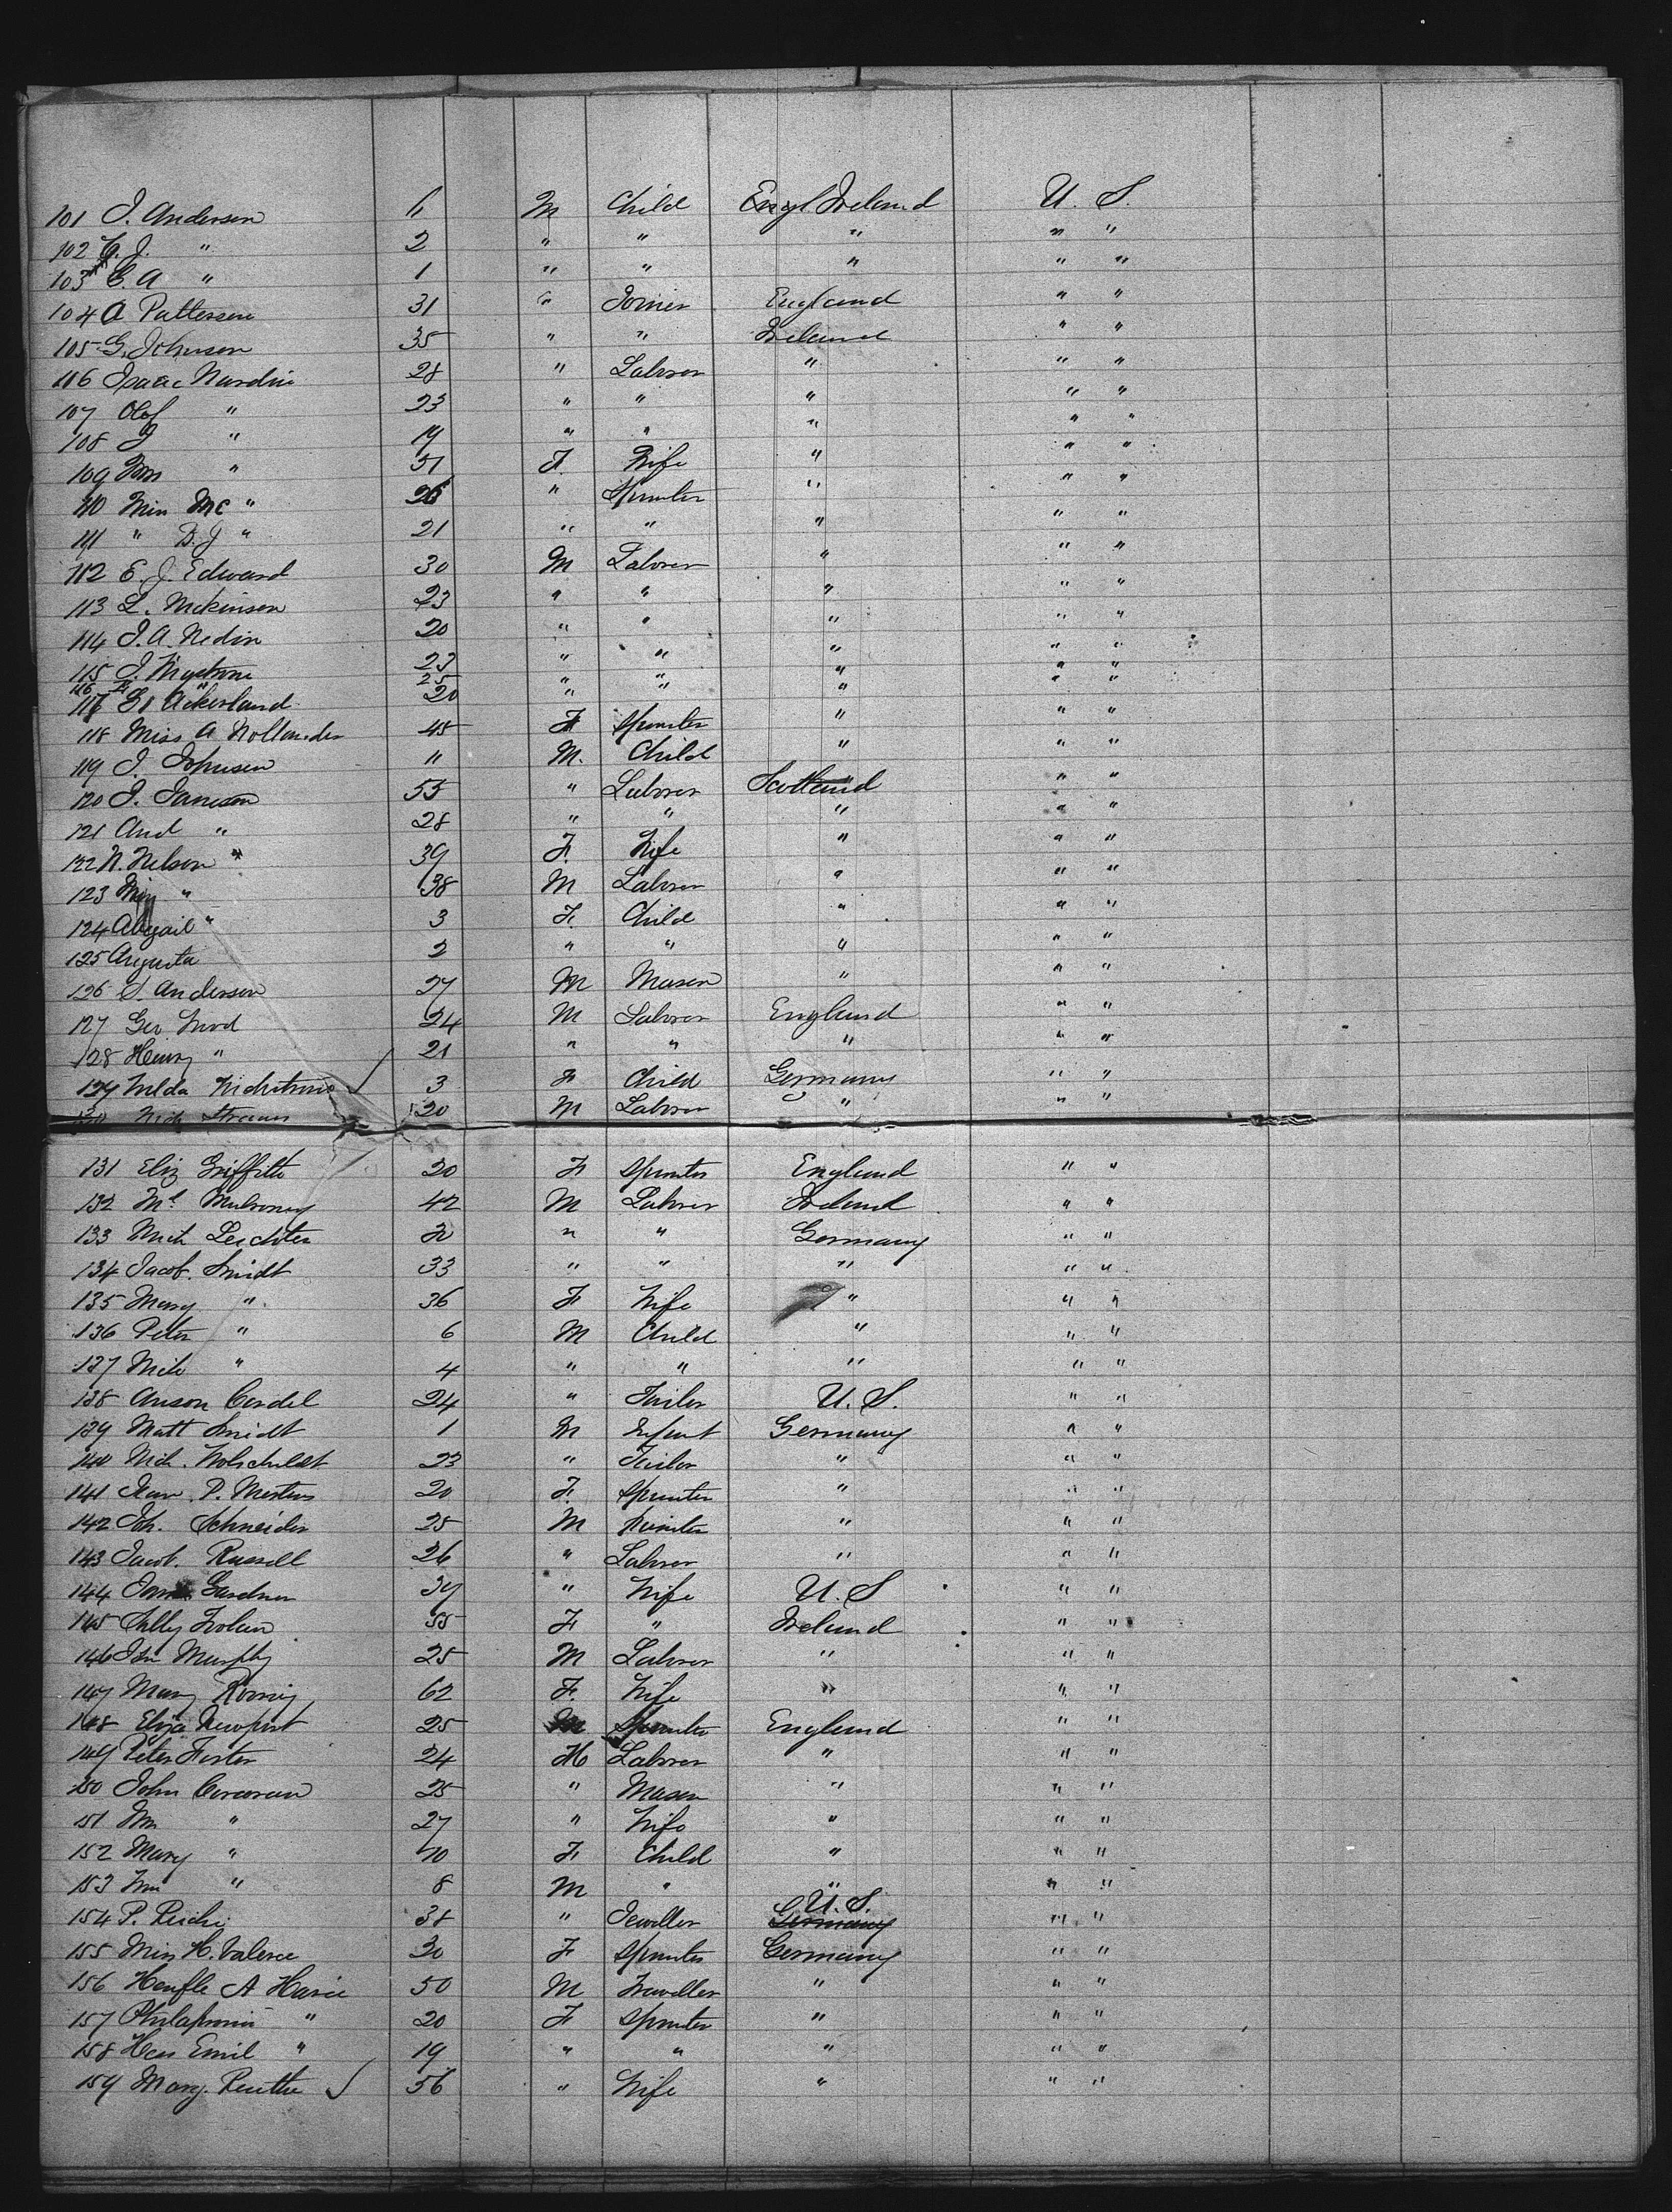 101 J. Anderson 6 M Child Engl Ireland U. S.
102 G. J. " 2 " " " " "
103 C. A " 1 " " " " "
104 A Patterson 31 " Joiner England " "
105 G. Johnson 35 " " Ireland " "
106 Isaac Nurdin 28 " Labrer " " "
107 Olof " 23 " " " " "
108 J " 19 " " " " "
109 Mrs " 31 F. Wife " " "
110 Miss Mc " 26 " Spinster " " "
111 " B. J " 21 " " " " "
112 E. J. Edward 30 M Labrer " " "
113 L. Mckinson 23 " " " " "
114 J. A. Nedin 20 " " " " "
115 J. 23 " " " " "
116 " 25 " " " " "
117 Ackerland 20 " " " " "
118 Miss A Hollander 45 F Spinster " " "
119 J. Johnson 11 M. Child " " "
120 J. Janeson 55 " Labrer Scotland " "
121 And " 28 " " " " "
122 N. Nelson " 39 F. Wife " " "
123 " 38 M Labrer " " "
124 Abigail " 3 F. Child " " "
125 Augusta 2 " " " " "
126 S. Anderson 27 M Mason " " "
127 Geo Wood 24 M Labrer England " "
128 Henry " 21 " " " " "
129 3 F Child Germany " "
130 Nich 20 M Labrer " " "
131 Eliz Griffitts 20 F Spinster England " "
132 Ml Mulroney 42 M Labrer Ireland " "
133 Mich Leichter " " Germany " "
134 Jacob. Smidt 33 " " " " "
135 Mary " 36 F Wife " " "
136 Peter " 6 M Child " " "
137 " 4 " " " " "
138 Anson Cordel 24 " Tailor U. S. " "
139 Matt Smidt 1 M Infant Germany " "
140 Nich. Holschuldt 23 " Tailor " " "
141 P. Mertens 20 F. Spinster " " "
142 Joh. Schneider 25 M " " "
143 Jacob. Russell 26 " Labrer " " "
144 Gardner 39 " Wife U. S " "
145 Sally 55 F " Ireland " "
146 Jon Murphy 25 M Labrer " " "
147 Mary 62 F. Wife " " "
148 Eliza Newport 25 Spinster England " "
149 Peter Foster 24 M Labrer " " "
150 John Corcoran 25 " Mason " " "
151 Wm " 27 " Wife " " "
152 Mary " 10 F Child " " "
153 Wm " 8 M " " " "
154 P. Reiche 38 " Jeweller Germany U. S. " "
155 Miss H. Valerce 30 F Spinster Germany " "
156 A Harie 50 M Traveller " " "
157 " 20 F Spinster " " "
158 Emil " 19 " " " " "
159 Mary. 56 " Wife " " "